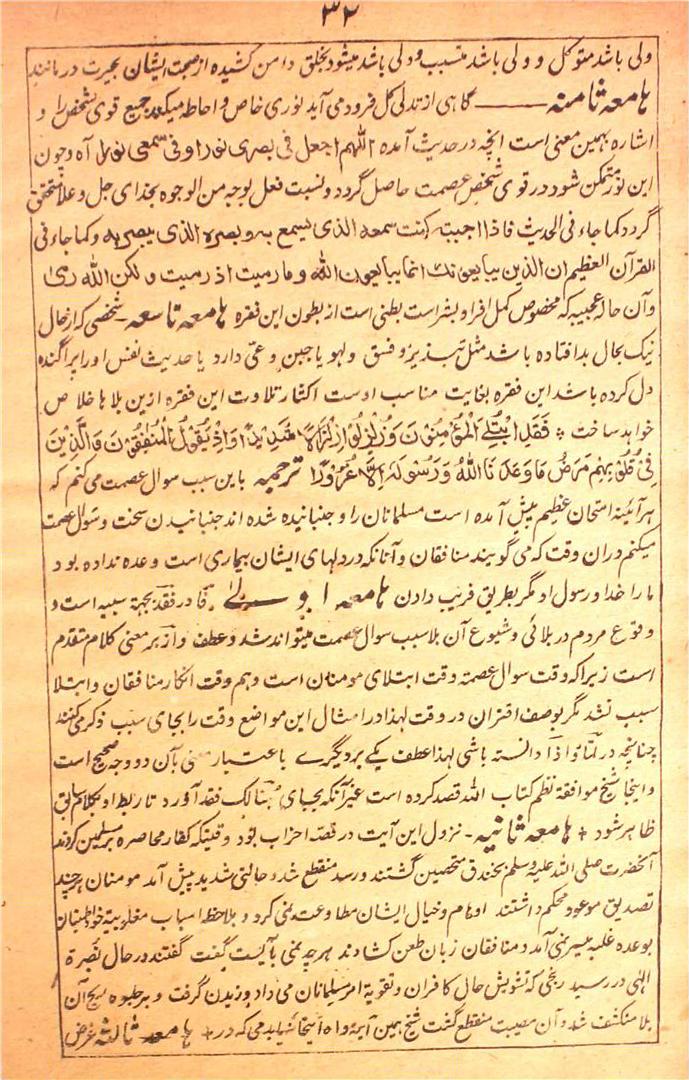 ۳۲
ولی باشد متوکل و ولی باشد متسبب و ولی باشد میشود بخلق دامن کشیده از صحبت ایشان بحیرت در مانند
هامعه ثامنه ــــ گاهی از تدلی کل فرود می آید نوری خاص و احاطه میکند جمیع قوی شخص را و
اشاره بهمین معنی است انچه در حدیث آمده اللهم اجعل فی بصری نورا و فی سمعی نورا آه و چون
این نور متمکن شود در قوی شخص عصمت حاصل گردد و نسبت فعل بوجه من الوجوه بخدای جل و علا متحقق
گردد کما جاء فی الحدیث فاذا احببته کنت سمعه الذی یسمع به و بصره الذی یبصر به و کما جاء فی
القرآن العظیم ان الذین یبایعونک انما یبایعون الله و ما رمیت اذ رمیت و لکن الله رمی
و آن حاله عجیبه که مخصوص کمل افراد بشر است بطنی است از بطون این فقره هامعه تاسعه ـ شخصی که از حال
نیک بحال بد افتاده باشد مثل تبذیر و فسق و لهو یا جبن و عی دارد یا حدیث نفس او را پراگنده
دل کرده باشد این فقره بغایت مناسب اوست اکثار تلاوت این فقره ازین بلاها خلاص
خواهد ساخت فَقَدِ ابْتُلِیَ الْمُؤْمِنُوْنَ وَ زُلْزِلُوْا زِلْزَالًا شَدِیْدًا وَ اِذْ یَقُوْلُ الْمُنٰفِقُوْنَ وَ الَّذِیْنَ
فِیْ قُلُوْبِهِمْ مَرَضٌ مَا وَعَدَنَا اللّٰهُ وَ رَسُوْلُهٗ اِلَّا غُرُوْرًا ترجمه باین سبب سوال عصمت می کنم که
هر آئینه امتحان عظیم پیش آمده است مسلمانان را و جنبانیده شده اند جنبانیدن سخت و سوال عصمت
میکنم دران وقت که می گویند منافقان و آنانکه در دلهای ایشان بیماری است وعده نداده بود
ما را خدا و رسول او مگر بطریق فریب دادن هامعه اولے فا در فقد بجهة سببیه است و
وقوع مردم در بلائی و شیوع آن بلا سبب سوال عصمت میتواند شد و عطف و اذ بر معنی کلام متقدم
است زیرا که وقت سوال عصمة وقت ابتلای مومنان است و هم وقت انکار منافقان و ابتلا
سبب نشد مگر بوصف اقتران در وقت لهذا در امثال این مواضع وقت را بجای سبب ذکر می کنند
چنانچه در لما و اذا دانسته باشی لهذا عطف یکے بر دیگرے باعتبار معنی بآن دو وجه صحیح است
و اینجا شیخ موافقة نظم کتاب الله قصد کرده است غیر آنکه بجای هنالک فقد آورد تا ربط او بکلام سابق
ظاهر شود + هامعه ثانیه ـ نزول این آیت در قصه احزاب بود وقتیکه کفار محاصره بر مسلمین کردند
آنحضرت صلی الله علیه وسلم بخندق متحصن گشتند و رسد منقطع شد و حالتی شدید پیش آمد مومنان هر چند
تصدیق موعود محکم داشتند اوهام و خیال ایشان مطاوعت نمی کرد و بلاحظه اسباب مغلوبیة خود اطمینان
بوعده غلبه میسر نمی آمد و منافقان زبان طعن کشادند هر چه نمی بایست گفت گفتند در حال نصرة
الهی در رسید ریحی که تشویش حال کافران و تقویة امر مسلمانان می داد وزیدن گرفت و بر جلوه ریح آن
بلا منکشف شد و آن مصیبت منقطع گشت شیخ همین آیة و می که در + هامعه ثالثه غرض